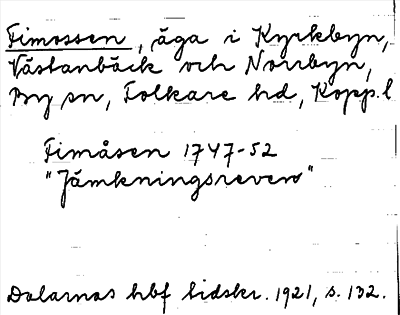 Fimossen, äga i Kyrkbyn,
Västanbäck och Norrbyn,
By sn, Folkare hd, Kopp. l
Fimåsen 1747-52
"Jämkningsrevers"
Dalarnas hbf tidskr. 1921, s. 132.